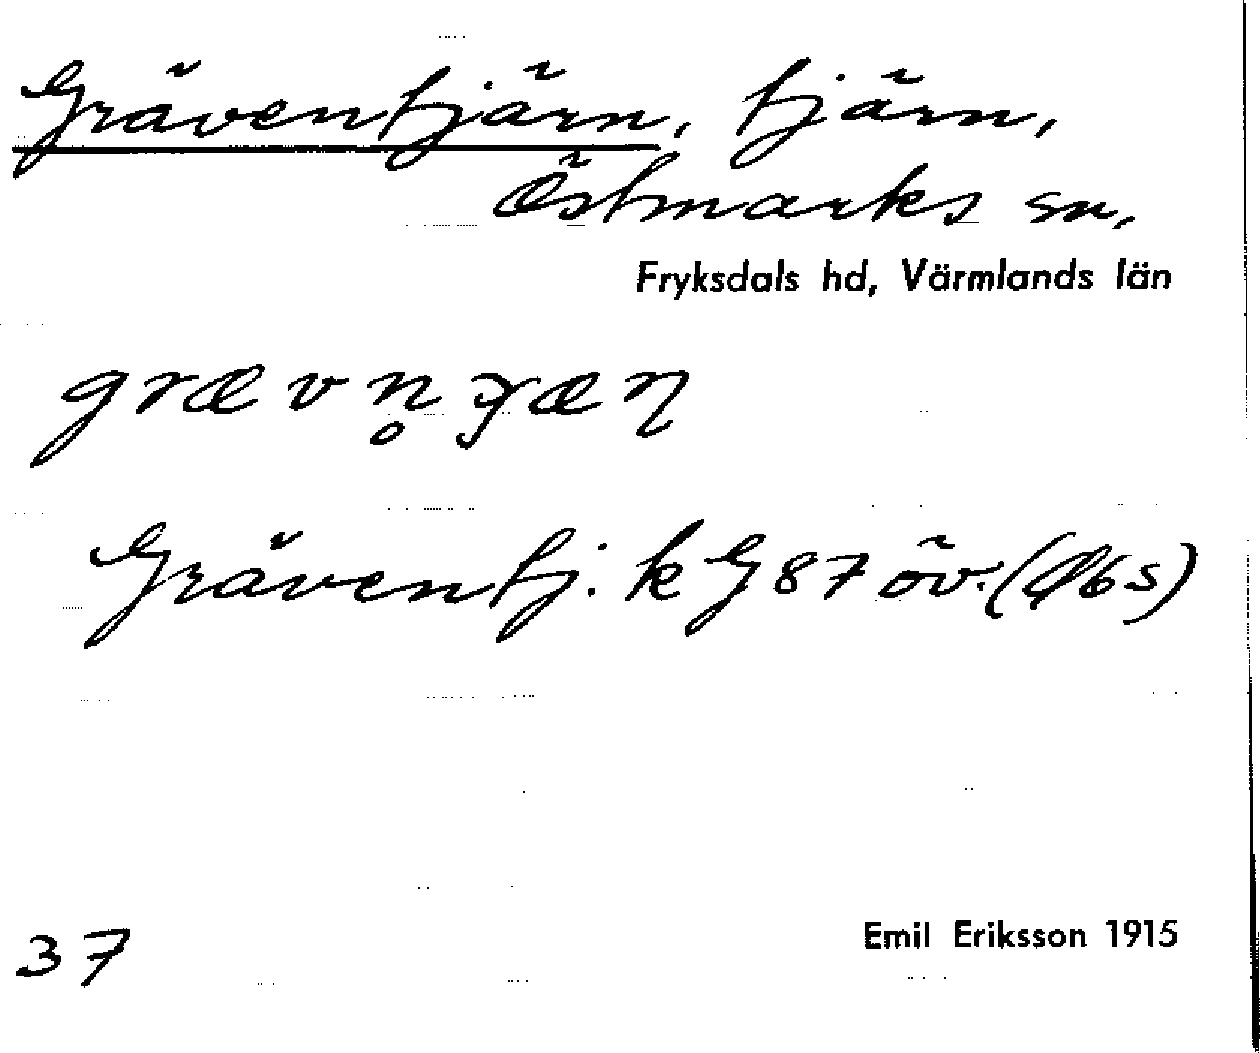 Gräventjärn, tjärn,
Östmarks sn,
Fryksdals hd, Värmlands län
Gräventj. k G 87 öv. (Ø6s)
37
Emil Eriksson 1915